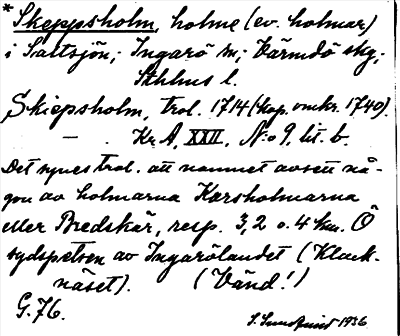 * Skeppsholm, holme (ev. holmar)
i Saltsjön; Ingarö sn; Värmdö skg;
Sthlms l.
Skiepsholm, trol. 1714 (kop. omkr. 1740).
— . Kr. A, XXII, N:o 9, lit. b.
Det synes trol. att namnet avsett nå-
gon av holmarna Korsholmarna
eller Bredskär, resp. 3,2 o. 4 km. Ö
sydspetsen av Ingarölandet (Klack-
näset). (Vänd!)
G. 76.
S. Sundqvist 1936